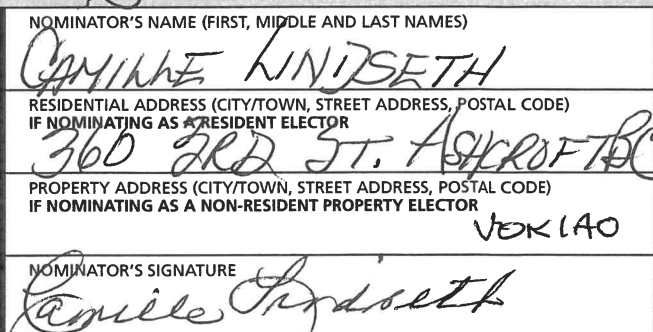 NOMINATOR'S NAME (FIRST, MIDDLE AND LAST NAMES)
CAMILLE LINDSETH
RESIDENTIAL ADDRESS (CITY/TOWN, STREET ADDRESS, POSTAL CODE)
IF NOMINATING AS A RESIDENT ELECTOR
360 3RD ST. ASHCROFT BC
PROPERTY ADDRESS (CITY/TOWN, STREET ADDRESS, POSTAL CODE)
IF NOMINATING AS A NON-RESIDENT PROPERTY ELECTOR
V0K1A0
NOMINATOR'S SIGNATURE
Camille Lindseth